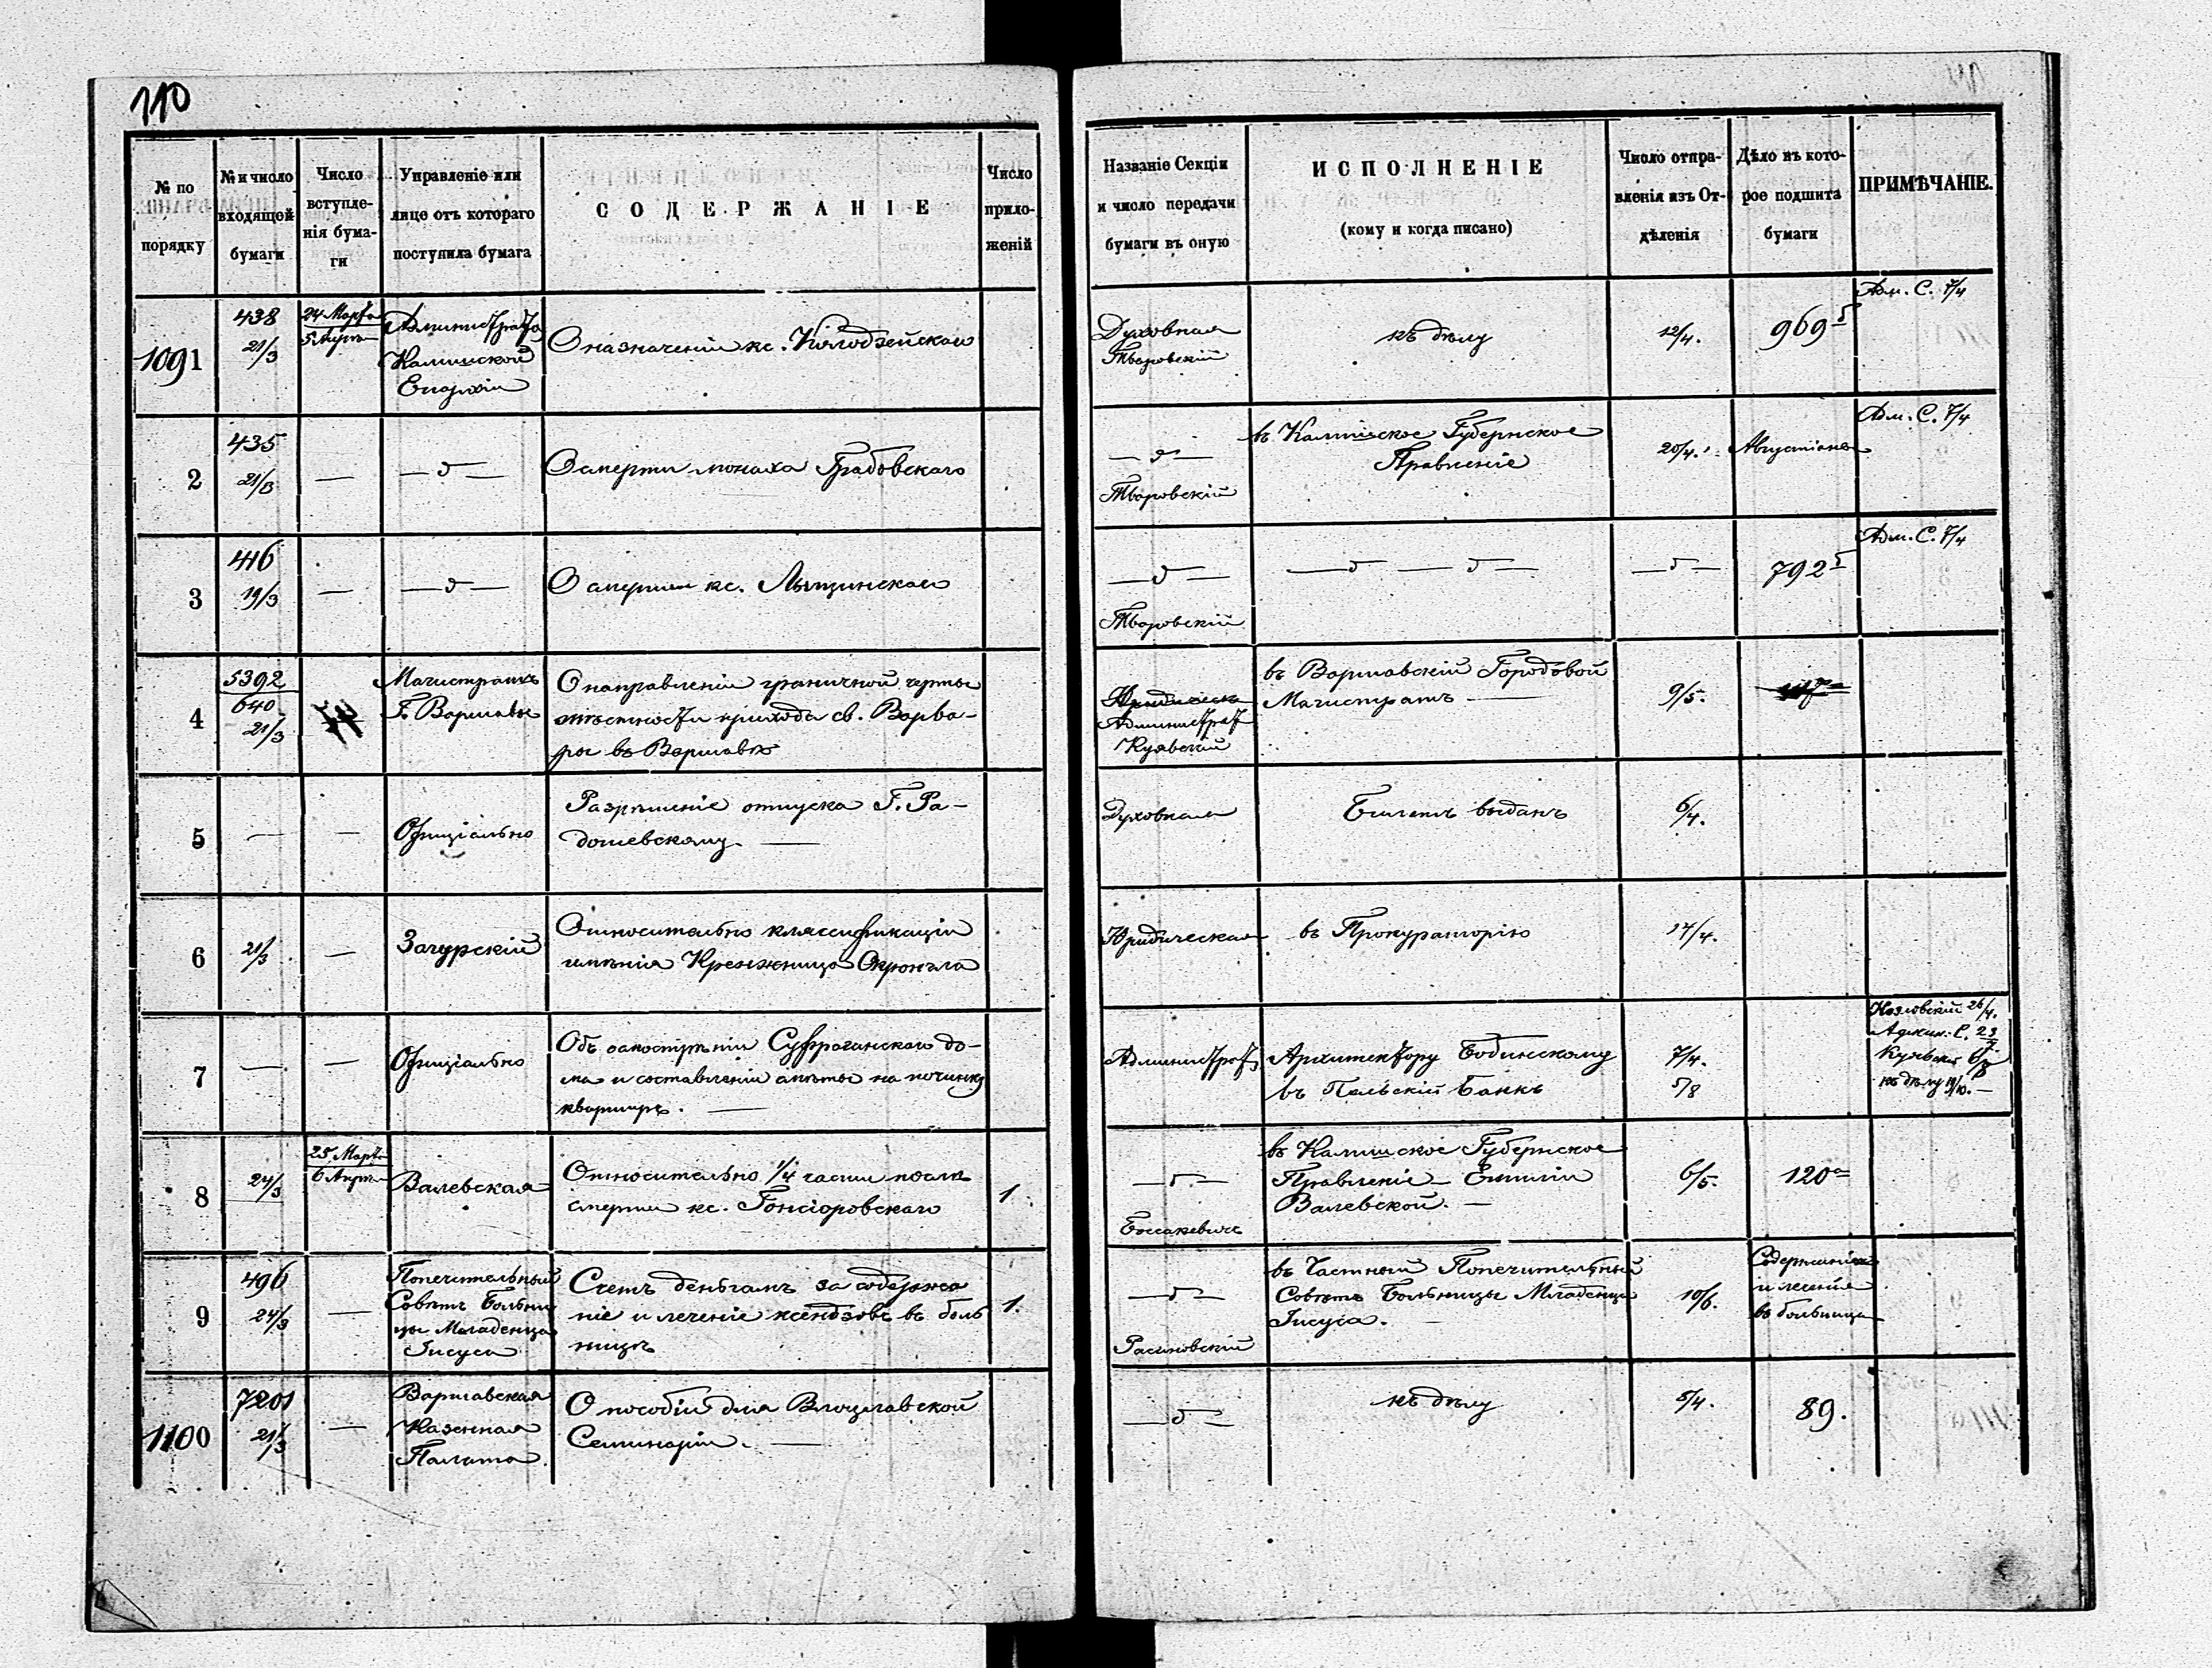 110
№ по порядку
№ и число входящей бумаги
Число вступленія бумаги
Управленіе или лице отъ котораго поступила бумага
СОДЕРЖАНІЕ
Число приложеній
Названіе Секціи и число передачи бумаги въ оную
ИСПОЛНЕНІЕ
(кому и когда писано)
Число отправленія изъ Отдѣленія
Дѣло въ которое подшита бумаги
ПРИМѢЧАНІЕ.
1091
438
21/3
24 Марта
5 Апрѣля
Калишской
Епархіи
О назначеніи кс.
Духовная
Творовскій
къ дѣлу
12/4.
969
Адм. С. 7/4
2
435
21/3
—
— д —
О смерти монаха Грабовскаго
— д —
Творовскій
въ Калишское Губернское
Правленіе
20/4.
Адм. С. 7/4
3
416
19/3
—
— д —
О смерти кс.
— д —
Творовскій
— д — — д —
— д —
792
Адм. С. 7/4
4
5392
640
21/3
Магистратъ
Г. Варшавы
О направленіи граничной черты
прихода св.Варва-
ры въ Варшавѣ
Куявскій
въ Варшавскій Городовой
Магистратъ —
9/5.
5
—
—
Официально
Разрѣшеніе отпуска Г. Ра-
дошевскому. —
Духовная
Билетъ выданъ
6/4.
6
21/3
—
Загурскій
Относительно классификаціи
имѣнія
Юридическая
въ Прокураторію
17/4.
7
—
—
Официально
Объ Суфраганскаго до-
ма и составленіи смѣты на починку
квартиръ. —
Архитектору
въ Польскій Банкъ
7/4.
5/8
Козловскій 26/4.
къ дѣлу
8
24/3
25 Марта
6 Апрѣля
Валевская
Относительно 1/4 части послѣ
смерти кс. Гонсіоровскаго
1.
— д —
въ Калишское Губернское
Правленіе — Емиліи
Валевской. —
6/5.
120
9
496
24/3
—
Попечительный
Совѣтъ Больни
цы Младенца
Іисуса
Счетъ деньгамъ за содержа
ніе и леченіе ксендзовъ въ боль
ницѣ
1.
— д —
въ Частный Попечительный
Совѣтъ Больницы Младенца
Іисуса.
10/6.
Содержаніе
и леченіе
въ больницѣ
1100
7201
21/3
—
Варшавская
Казенная
Палата
О пособіи для Влоцлавской
Семинаріи. —
— д —
къ дѣлу
5/4.
89.